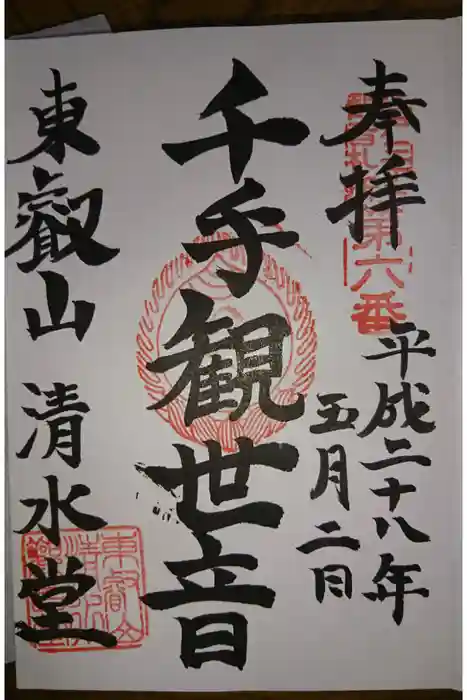 奉拝
第六番
平成二十八年
五月二日
千手観世音
東叡山 清水堂